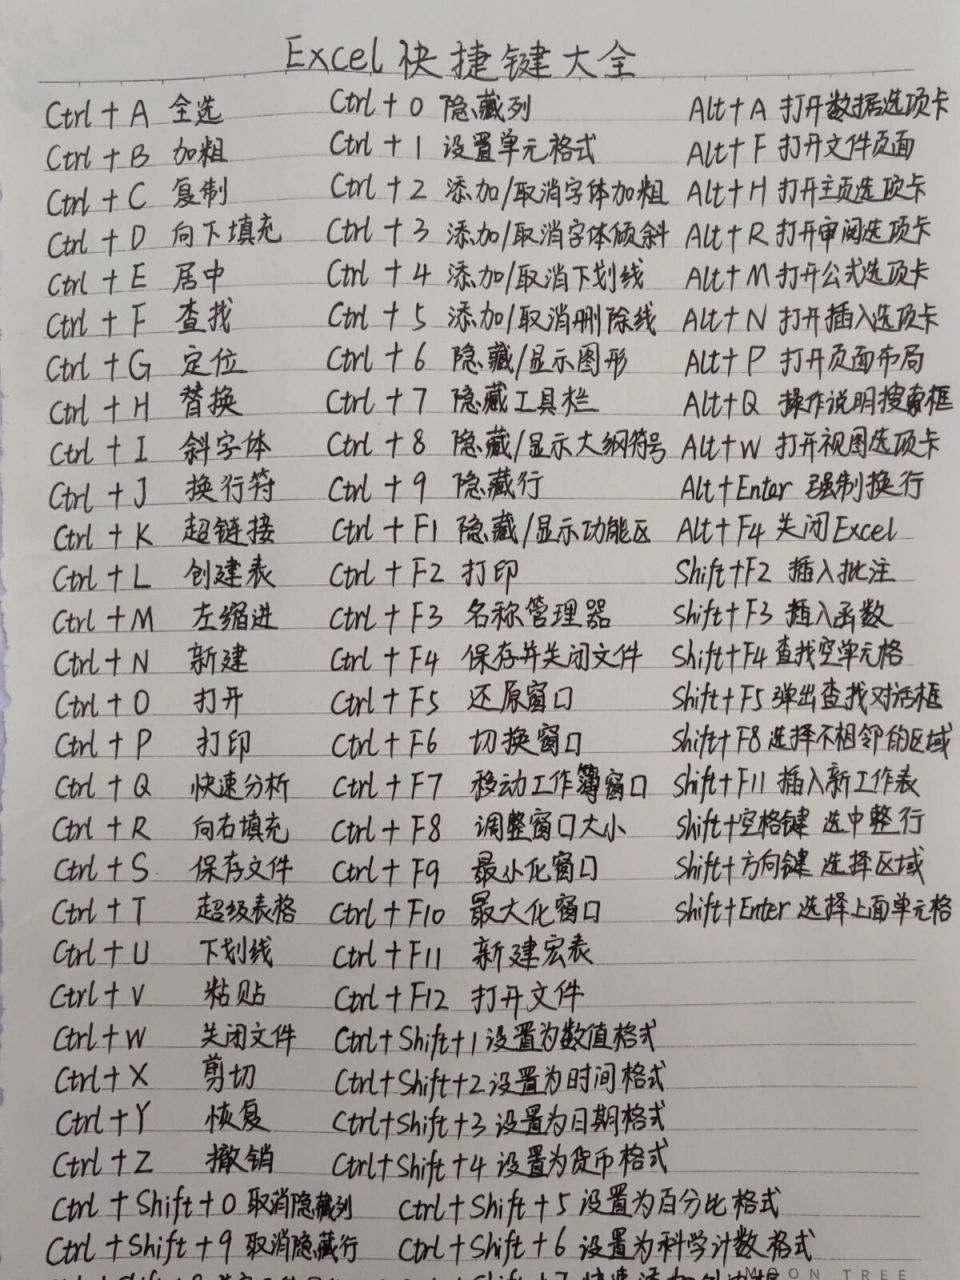 Excel快捷键大全
Ctrl+A 全选 Ctrl+0 隐藏列 Alt+A 打开数据选项卡
Ctrl+B 加粗 Ctrl+1 设置单元格式 Alt+F 打开文件页面
Ctrl+C 复制 Ctrl+2 添加/取消字体加粗 Alt+H 打开主页选项卡
Ctrl+D 向下填充 Ctrl+3 添加/取消字体倾斜 Alt+R 打开审阅选项卡
Ctrl+E 居中 Ctrl+4 添加/取消下划线 Alt+M 打开公式选项卡
Ctrl+F 查找 Ctrl+5 添加/取消删除线 Alt+N 打开插入选项卡
Ctrl+G 定位 Ctrl+6 隐藏/显示图形 Alt+P 打开页面布局
Ctrl+H 替换 Ctrl+7 隐藏工具栏 Alt+Q 操作说明搜索框
Ctrl+I 斜字体 Ctrl+8 隐藏/显示大纲符号 Alt+W 打开视图选项卡
Ctrl+J 换行符 Ctrl+9 隐藏行 Alt+Enter 强制换行
Ctrl+K 超链接 Ctrl+F1 隐藏/显示功能区 Alt+F4 关闭Excel
Ctrl+L 创建表 Ctrl+F2 打印 Shift+F2 插入批注
Ctrl+M 左缩进 Ctrl+F3 名称管理器 Shift+F3 插入函数
Ctrl+N 新建 Ctrl+F4 保存并关闭文件 Shift+F4 查找空单元格
Ctrl+O 打开 Ctrl+F5 还原窗口 Shift+F5 弹出查找对话框
Ctrl+P 打印 Ctrl+F6 切换窗口 Shift+F8 选择不相邻的区域
Ctrl+Q 快速分析 Ctrl+F7 移动工作簿窗口 Shift+F11 插入新工作表
Ctrl+R 向右填充 Ctrl+F8 调整窗口大小 Shift+空格键 选中整行
Ctrl+S 保存文件 Ctrl+F9 最小化窗口 Shift+方向键 选择区域
Ctrl+T 超级表格 Ctrl+F10 最大化窗口 Shift+Enter 选择上面单元格
Ctrl+U 下划线 Ctrl+F11 新建宏表
Ctrl+V 粘贴 Ctrl+F12 打开文件
Ctrl+W 关闭文件 Ctrl+Shift+1 设置为数值格式
Ctrl+X 剪切 Ctrl+Shift+2 设置为时间格式
Ctrl+Y 恢复 Ctrl+Shift+3 设置为日期格式
Ctrl+Z 撤销 Ctrl+Shift+4 设置为货币格式
Ctrl+Shift+0 取消隐藏列 Ctrl+Shift+5 设置为百分比格式
Ctrl+Shift+9 取消隐藏行 Ctrl+Shift+6 设置为科学计数格式
MOON TREE